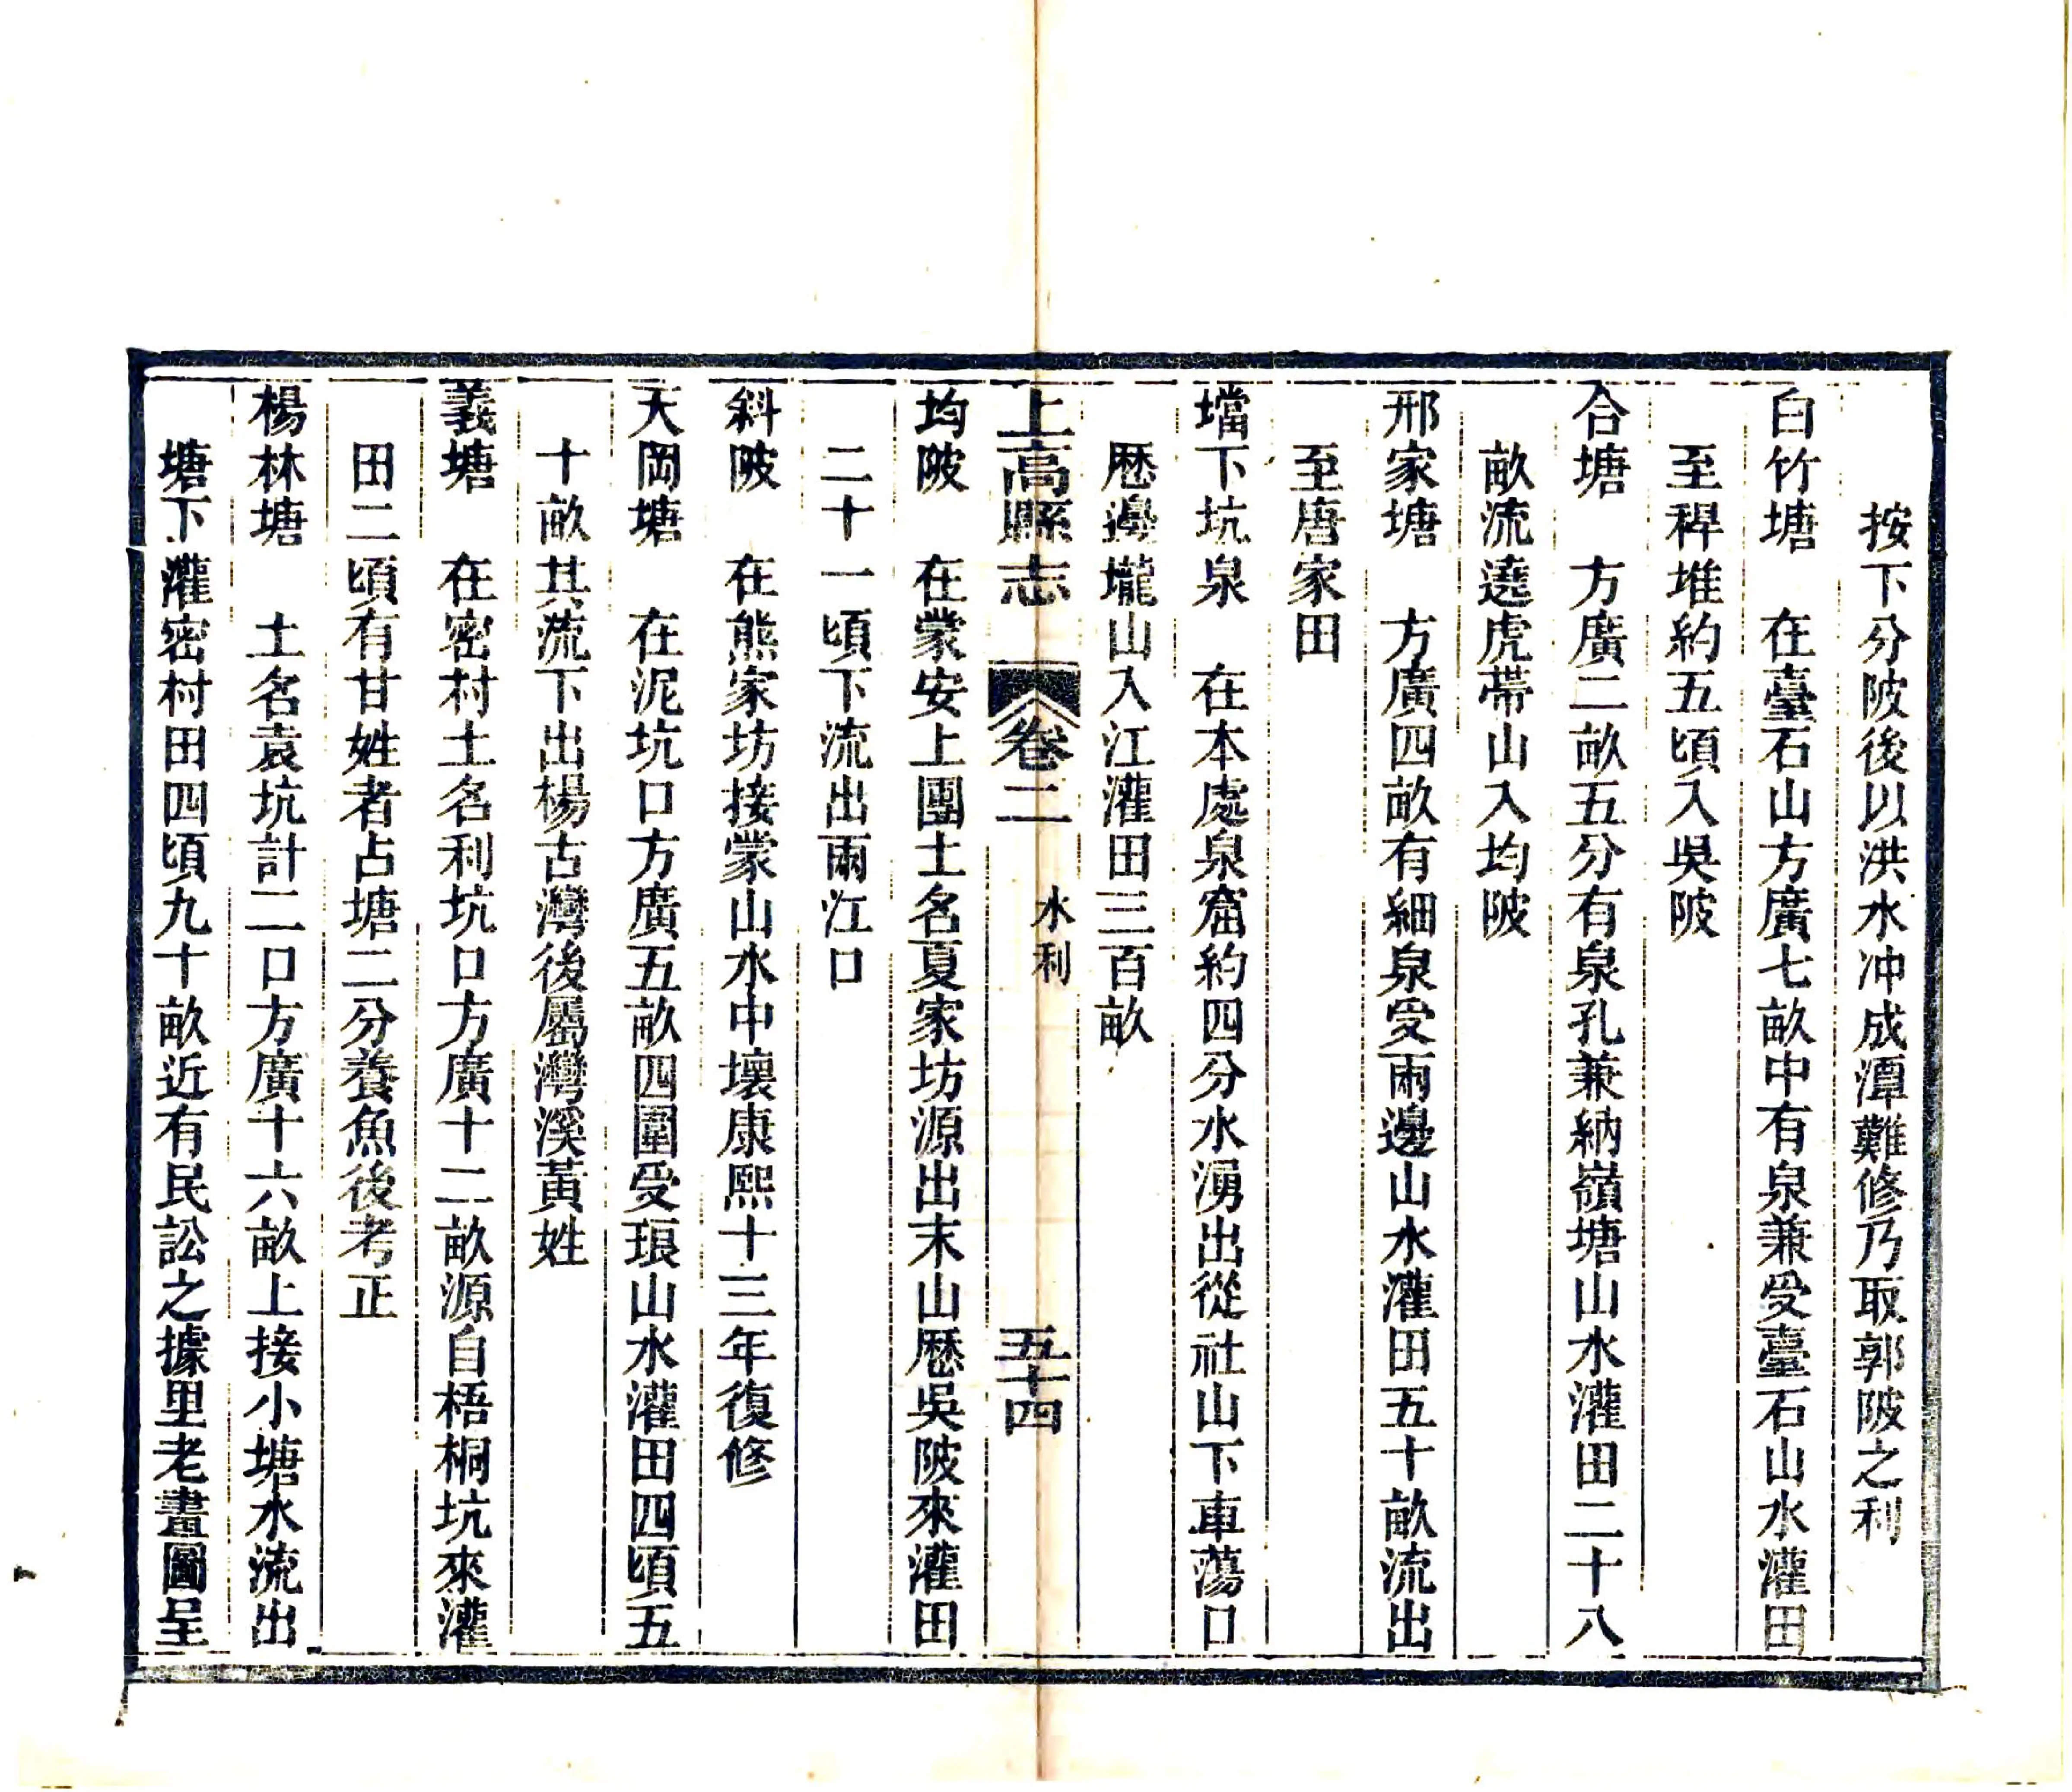 按下分陂後以洪水冲成潭難修乃取郭陂之利
白竹塘　在臺石山方廣七畝中有泉兼受臺石山水灌田
至稈堆約五頃入吳陂
合塘　方廣二畝五分有泉孔兼納嶺塘山水灌田二十八
畝流遶虎蒂山入均陂
邢家塘　方廣四畝有細泉受兩邊山水灌田五十畝流出
至唐家田
壋下坑泉　在本處泉窟約四分水湧出從社山下車蕩口
歷邊壠山入江灌田三百畝
上高縣志　卷二　水利　五十四
均陂　在蒙安上團土名夏家坊源出末山歷吳陂來灌田
二十一頃下流出兩江口
斜陂　在熊家坊接蒙山水中壞康熙十三年復修
天岡塘　在泥坑口方廣五畝四圍受琅山水灌田四頃五
十畝其流下出楊古灣後屬灣溪黃姓
義塘　在密村土名利坑口方廣十二畝源自梧桐坑來灌
田二頃有甘姓者占塘二分養魚後考正
楊林塘　土名袁坑計二口方廣十六畝上接小塘水流出
塘下灌密村田四頃九十畝近有民訟之據里老畫圖呈